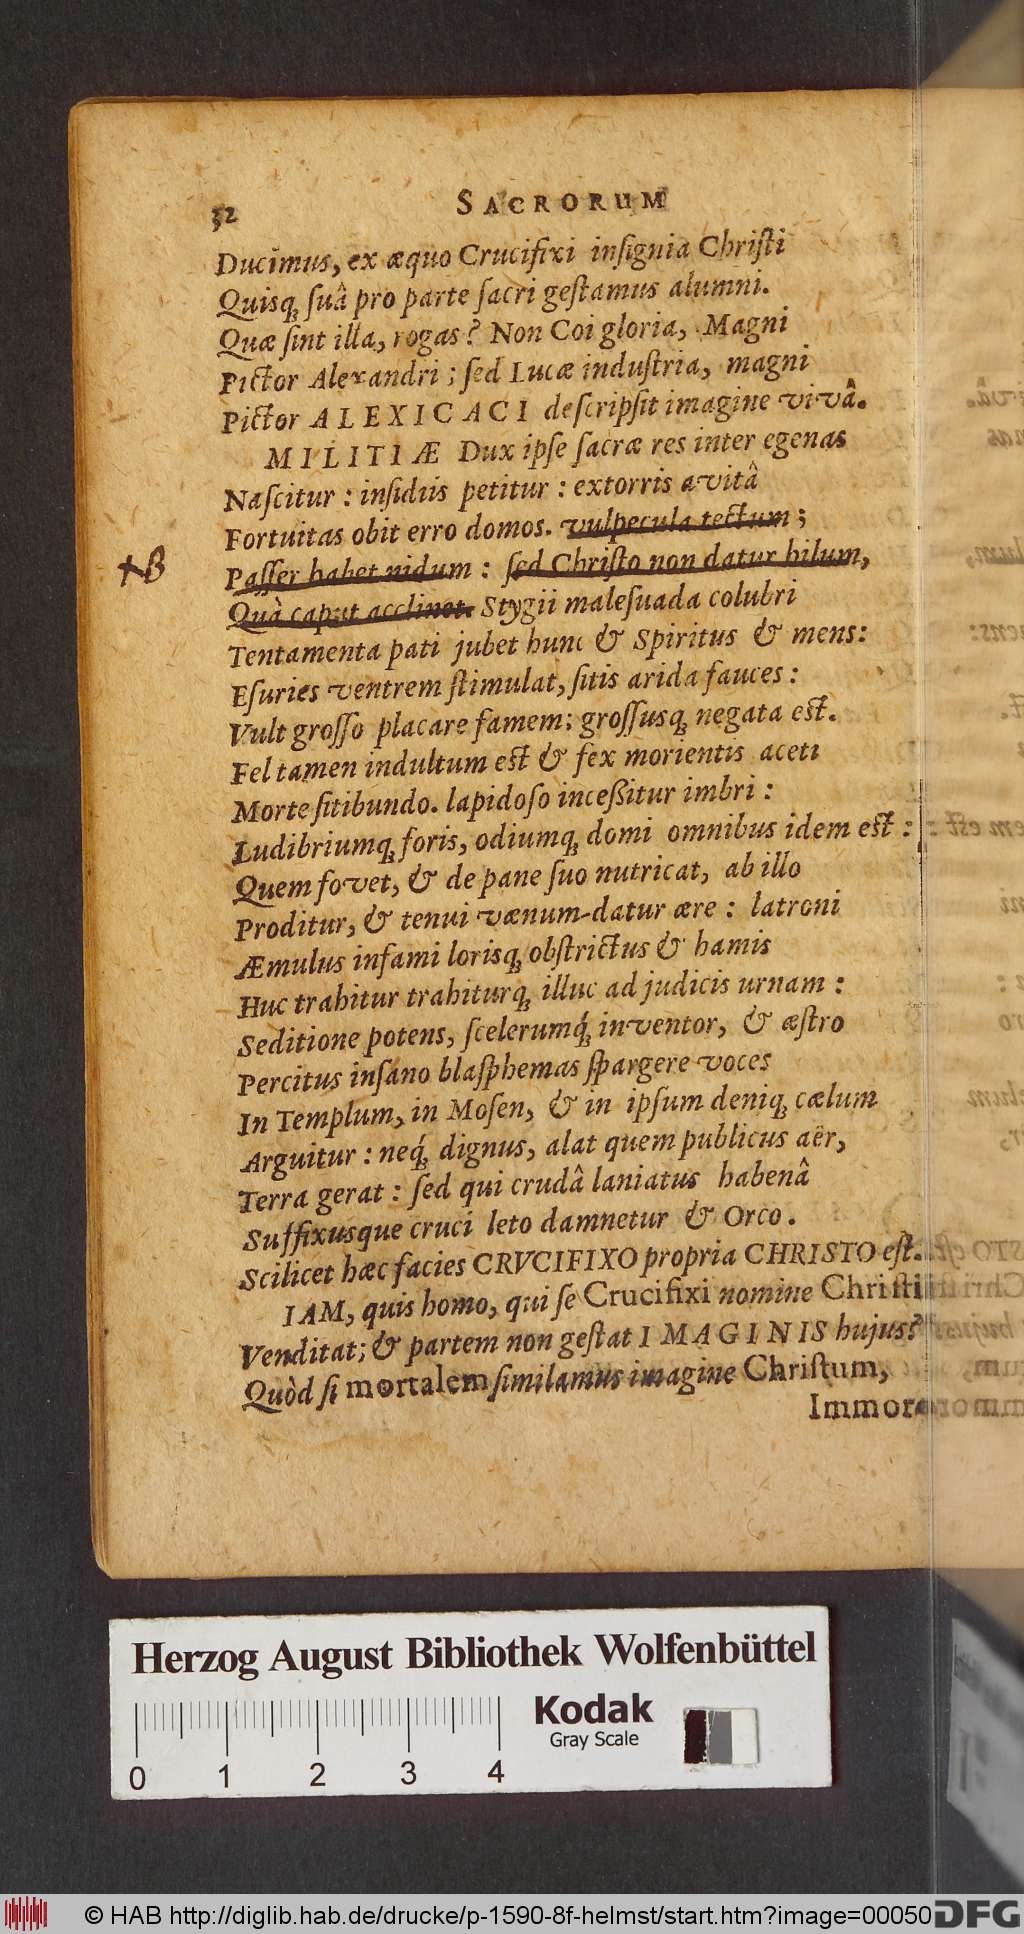 32 SACRORUM
Ducimus, ex æquo Crucifixi inſignia Chriſti
Quisq; ſuâ pro parte ſacri geſtamus alumni.
Quæ ſint illa, rogas? Non Coi gloria, Magni
Pictor Alexandri; ſed Lucæ induſtria, magni
Pictor ALEXICACI deſcripſit imagine vivâ.
MILITIÆ Dux ipſe ſacræ res inter egenas
Naſcitur: inſidiis petitur: extorris avitâ
Fortuitas obit erro domos. vulpecula tectum;
NB
Paſſer habet nidum: ſed Chriſto non datur hilum,
Quà caput acclinet. Stygii maleſuada colubri
Tentamenta pati jubet hunc & Spiritus & mens:
Eſuries ventrem ſtimulat, ſitis arida fauces:
Vult groſſo placare famem; groſſusq; negata eſt.
Fel tamen indultum eſt & fex morientis aceti
Morte ſitibundo. lapidoſo inceßitur imbri:
Ludibriumq; foris, odiumq; domi omnibus idem eſt:
Quem fovet, & de pane ſuo nutricat, ab illo
Proditur, & tenui vænum-datur ære: latroni
Æmulus infami lorisq; obſtrictus & hamis
Huc trahitur trahiturq; illuc ad judicis urnam:
Seditione potens, ſcelerumq́; inventor, & æſtro
Percitus inſano blaſphemas ſpargere voces
In Templum, in Moſen, & in ipſum deniq; cælum
Arguitur: neq́; dignus, alat quem publicus aër,
Terra gerat: ſed qui crudâ laniatus habenâ
Suffixusque cruci leto damnetur & Orco.
Scilicet hæc facies CRVCIFIXO propria CHRISTO eſt.
IAM, quis homo, qui ſe Crucifixi nomine Chriſti
Venditat; & partem non geſtat IMAGINIS hujus?
Quòd ſi mortalem ſimilamus imagine Chriſtum,
Immor
Herzog August Bibliothek Wolfenbüttel
Kodak
Gray Scale
0 1 2 3 4
© HAB http://diglib.hab.de/drucke/p-1590-8f-helmst/start.htm?image=00050
DFG